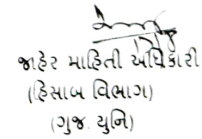 જાહેર માહિતી અધિકારી
(હિસાબ વિભાગ)
(ગુજ. યુનિ)